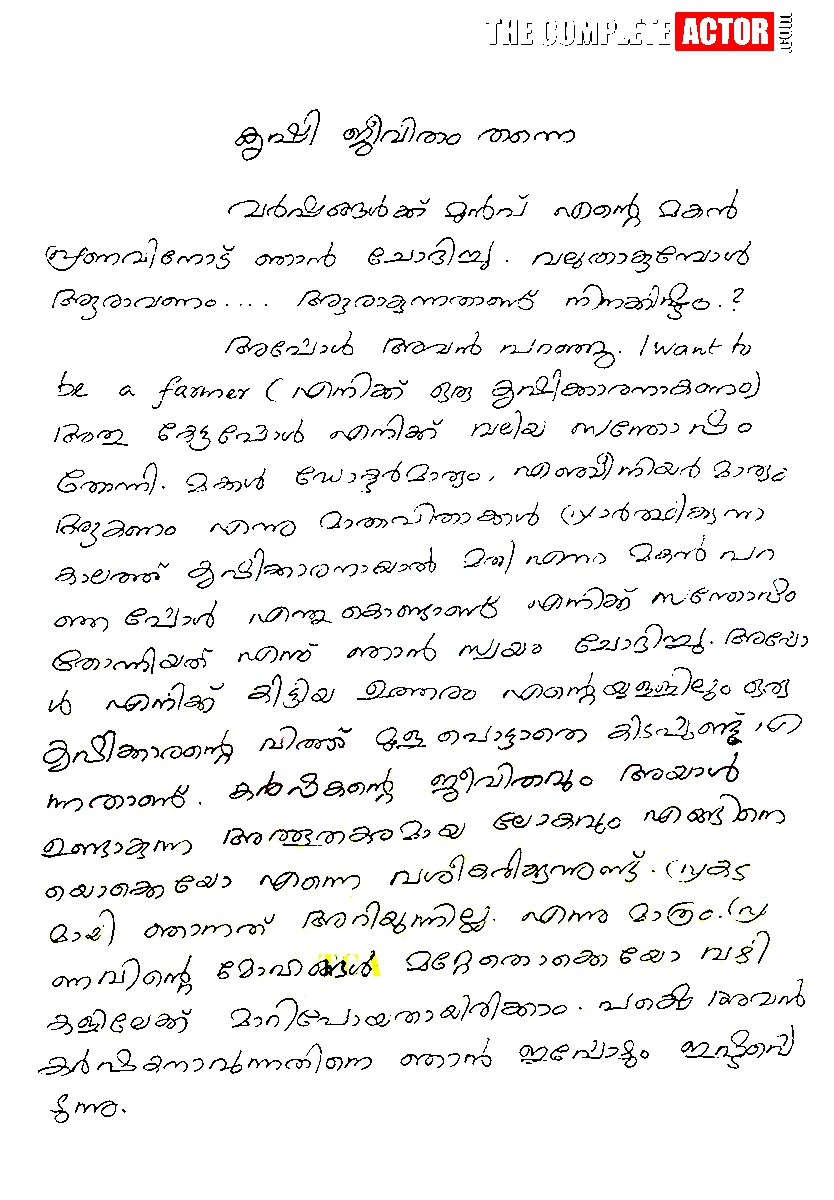 THE COMPLETE ACTOR
കൃഷി ജീവിതം തന്നെ
വർഷങ്ങൾക്ക് മുൻപ് എന്റെ മകൻ
പ്രണവിനോട് ഞാൻ ചോദിച്ചു. വലുതാകുമ്പോൾ
ആരാവണം.... ആരാകുന്നതാണ് നിനക്കിഷ്ടം.?
അപ്പോൾ അവൻ പറഞ്ഞു. I want to
be a farmer ( എനിക്ക് ഒരു കൃഷിക്കാരനാകണം)
അതു കേട്ടപ്പോൾ എനിക്ക് വലിയ സന്തോഷം
തോന്നി. മക്കൾ ഡോക്ടർമാരും, എഞ്ചിനിയർ മാരും
ആകണം എന്നു മാതാവിതാക്കൾ പ്രാർത്ഥിക്കുന്ന
കാലത്ത് കൃഷിക്കാരനായാൽ മതി എന്ന മകൻ പറ
ഞ്ഞ പ്പോൾ എന്തു കൊണ്ടാണ് എനിക്ക് സന്തോഷം
തോന്നിയത് എന്ന് ഞാൻ സ്വയം ചോദിച്ചു. അപ്പോ
ൾ എനിക്ക് കിട്ടിയ ഉത്തരം എന്റെയുള്ളിലും ഒരു
കൃഷിക്കാരന്റെ വിത്ത് മുള പൊട്ടാതെ കിടപ്പുണ്ട് എ
ന്നതാണ്. കർഷകന്റെ ജീവിതവും അയാൾ
ഉണ്ടാക്കുന്ന അത്ഭുതകരമായ ലോകവും എങ്ങിനെ
യൊക്കെയോ എന്നെ വശീകരിക്കുന്നുണ്ട്. പ്രകട
മായി ഞാനത് അറിയുന്നില്ല. എന്നു മാത്രം. പ്ര
ണവിന്റെ മോഹങ്ങൾ മറ്റേതൊക്കെയോ വഴി
കളിലേക്ക് മാറിപോയതായിരിക്കാം. പക്ഷെ അവൻ
കർഷകനാവുന്നതിനെ ഞാൻ ഇപ്പോഴും ഇഷ്ടപ്പെ
ടുന്നു.